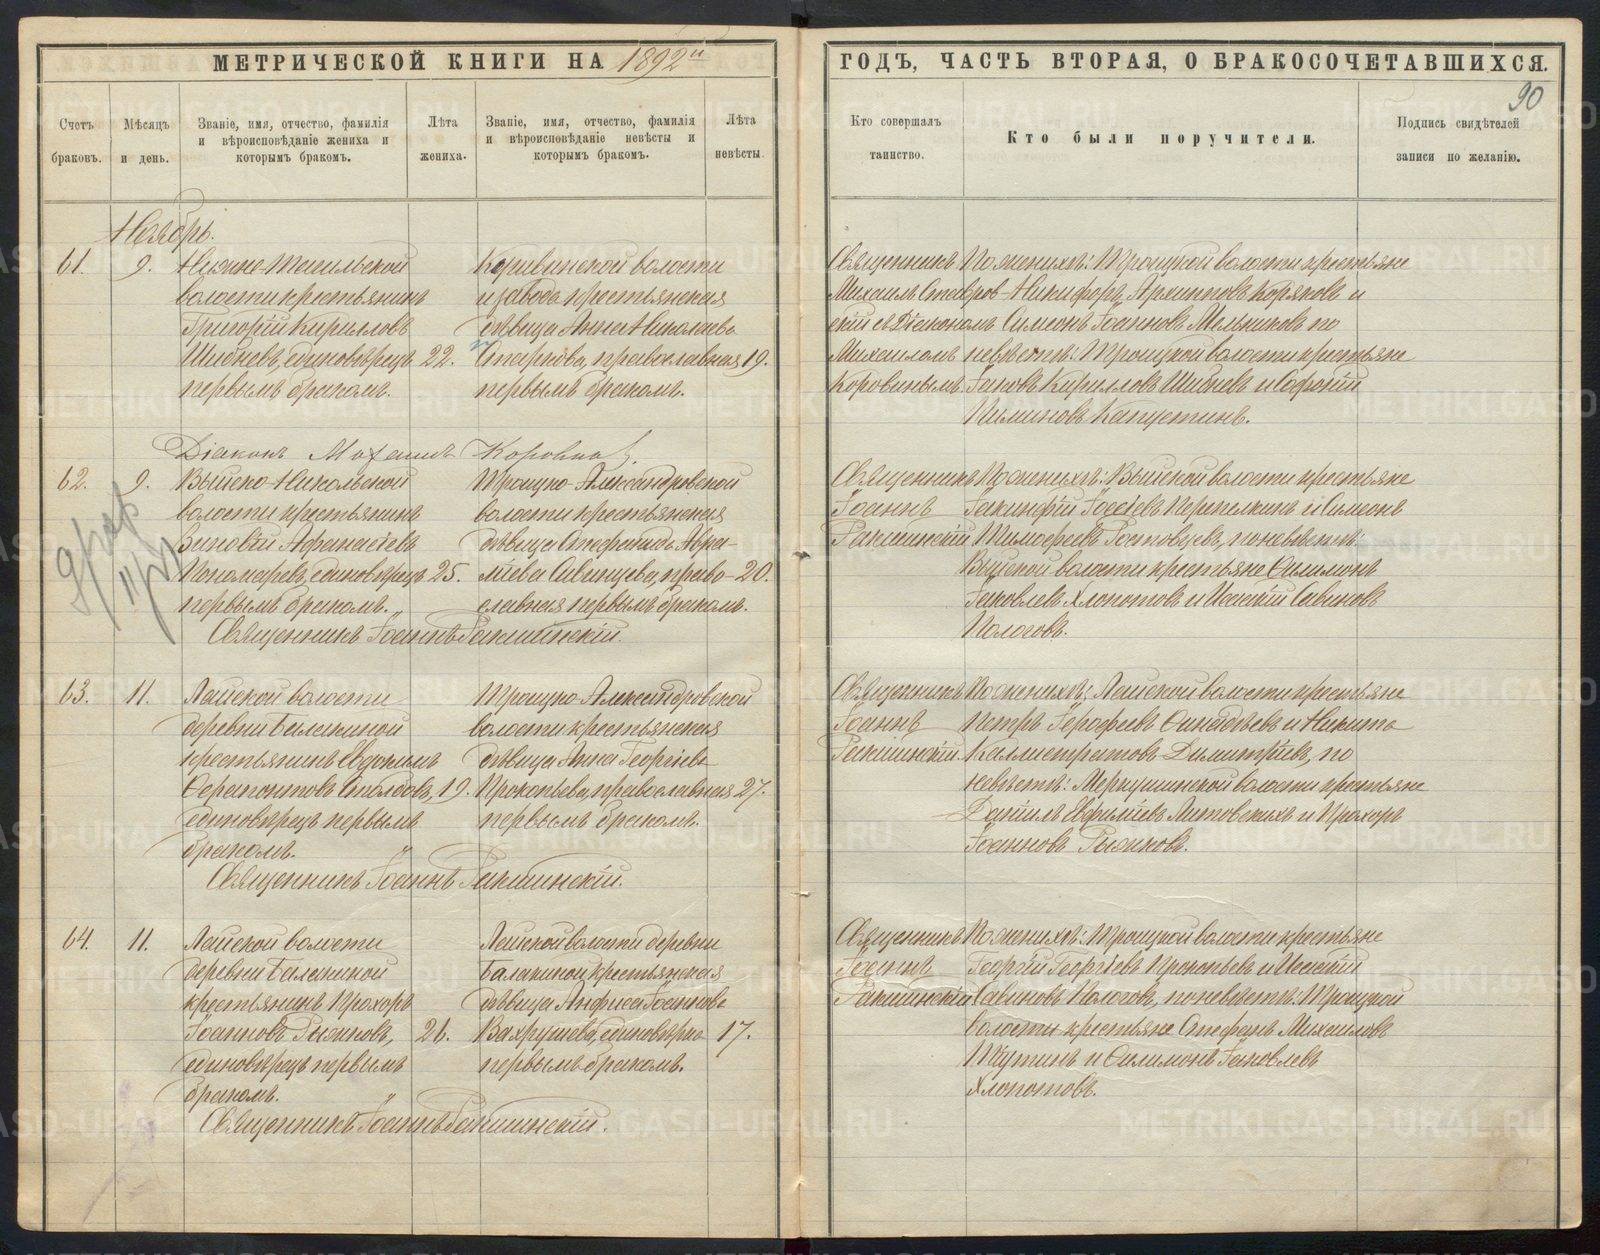 МЕТРИЧЕСКОЙ КНИГИ НА 1892й
Счетъ браковъ.
Мѣсяцъ и день.
Званіе, имя, отчество, фамилія и вѣроисповѣданіе жениха и которымъ бракомъ.
Лѣта жениха.
Званіе, имя, отчество, фамилія и вѣроисповѣданіе невѣсты и которымъ бракомъ.
Лѣта невѣсты.
Ноябрь.
61. 9.
Нижне-Тагильской
волости крестьянинъ
Григорій Кирилловъ
Шибневъ, единовѣрецъ 22.
первымъ бракомъ.
волости
и завода крестьянская
дѣвица Анна Николаева
православная 19.
первымъ бракомъ.
Діаконъ Михаилъ Коровинъ
62. 9.
Выйско-Никольской
волости крестьянинъ
Зиновій Афанасіевъ
Пономаревъ, единовѣрецъ 25.
первымъ бракомъ.
Троицко-Александровской
волости крестьянская
дѣвица Стефанида Авра-
міева Савинцева, право- 20.
славная первымъ бракомъ.
Священникъ Іоаннъ
63. 11.
Лайской волости
деревни Балакиной
крестьянинъ Евдокимъ
Ферапонтовъ Столбовъ, 19.
единовѣрецъ первымъ
бракомъ.
Троицко-Александровской
волости крестьянская
дѣвица Анна Георгіева
Прокопьева, православная 27.
первымъ бракомъ.
Священникъ Іоаннъ
64. 11.
Лайской волости
деревни Балакиной
крестьянинъ Прохоръ
Іоанновъ Рыжковъ, 21.
единовѣрецъ первымъ
бракомъ.
Лайской волости деревни
Балакиной крестьянская
дѣвица Анфиса Іоаннова
Вахрушева, единовѣрка 17.
первымъ бракомъ.
Священникъ Іоаннъ
ГОДЪ, ЧАСТЬ ВТОРАЯ, О БРАКОСОЧЕТАВШИХСЯ.
90
Кто совершалъ таинство.
Кто были поручители.
Подпись свидѣтелей записи по желанію.
Священникъ
Михаилъ Ставров-
скій съ Діакономъ
Михаиломъ
Коровинымъ.
По женихѣ: Троицкой волости крестьяне
Никифоръ Архиповъ Коряковъ и
Симеонъ Іоанновъ Мельниковъ по
невѣстѣ: Троицкой волости крестьяне
Іаковъ Кирилловъ Шибневъ и Софоній
Капустинъ.
Священникъ
Іоаннъ
По женихѣ: Выйской волости крестьяне
Іакинфій Іосіевъ Перепелкинъ и Симеонъ
Тимофеевъ по невѣстѣ:
Выйской волости крестьяне Филимонъ
Іаковлевъ Хлопотовъ и Савиновъ
Пологовъ.
Священникъ
Іоаннъ
По женихѣ: Лайской волости крестьяне
Петръ Ерофеевъ и Никита
Каллистратовъ Димитріевъ, по
невѣстѣ: Меркушинской волости крестьяне
Даніилъ Евфиміевъ Литовскихъ и Прохоръ
Іоанновъ Рыжковъ.
Священникъ
Іоаннъ
По женихѣ: Троицкой волости крестьяне
Георгій Георгіевъ Прокопьевъ и
Савиновъ Пологовъ, по невѣстѣ: Троицкой
волости крестьяне Стефанъ Михаиловъ
и Филимонъ Іаковлевъ
Хлопотовъ.
METRIKI.GASO-URAL.RU